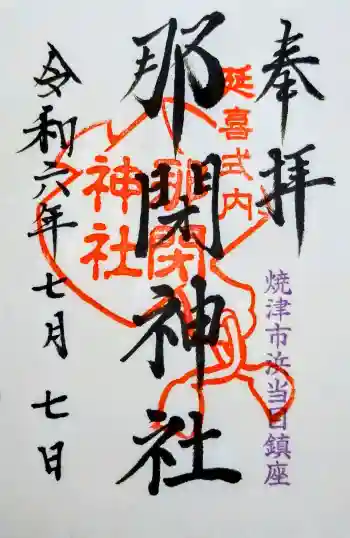 奉拝
延喜式内
焼津市浜当目鎮座
那閉神社
那閉神社
令和六年七月七日